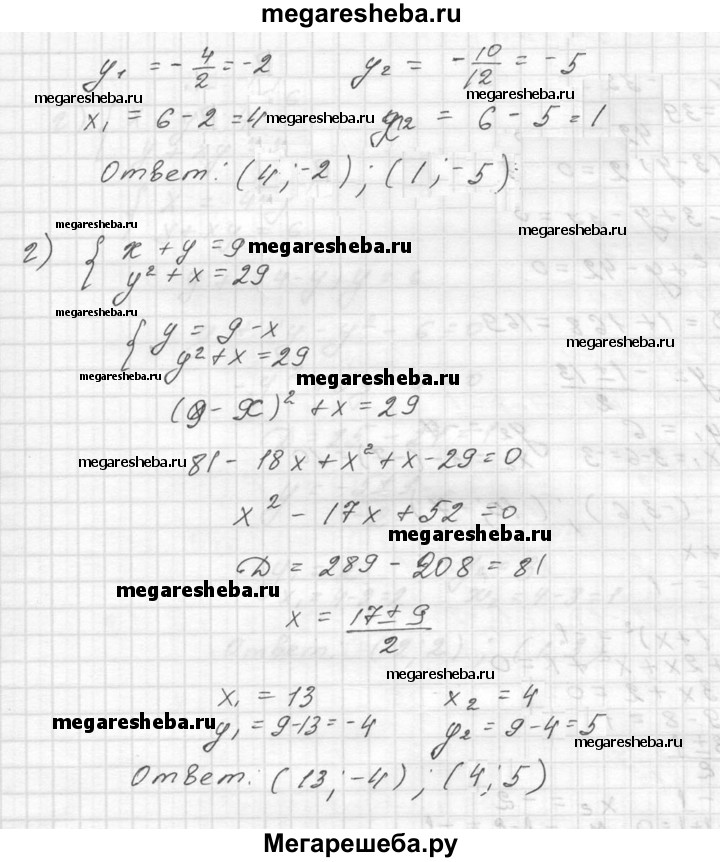 megaresheba.ru
y₁ = - 4/2 = -2 y₂ = - 10/12 = -5
megaresheba.ru megaresheba.ru
x₁ = 6 - 2 = 4 megaresheba.ru y₂ = 6 - 5 = 1
Ответ: (4; -2); (1; -5)
megaresheba.ru
2) { x + y = 9 megaresheba.ru megaresheba.ru
y² + x = 29
megaresheba.ru
{ y = 9 - x megaresheba.ru
y² + x = 29
megaresheba.ru megaresheba.ru
(9 - x)² + x = 29
megaresheba.ru 81 - 18x + x² + x - 29 = 0
x² - 17x + 52 = 0
megaresheba.ru
D = 289 - 208 = 81
megaresheba.ru
x = 17 ± 9 / 2
megaresheba.ru
x₁ = 13 x₂ = 4
megaresheba.ru y₁ = 9 - 13 = -4 y₂ = 9 - 4 = 5 megaresheba.ru
Ответ: (13; -4); (4; 5)
Мегарешеба.ру